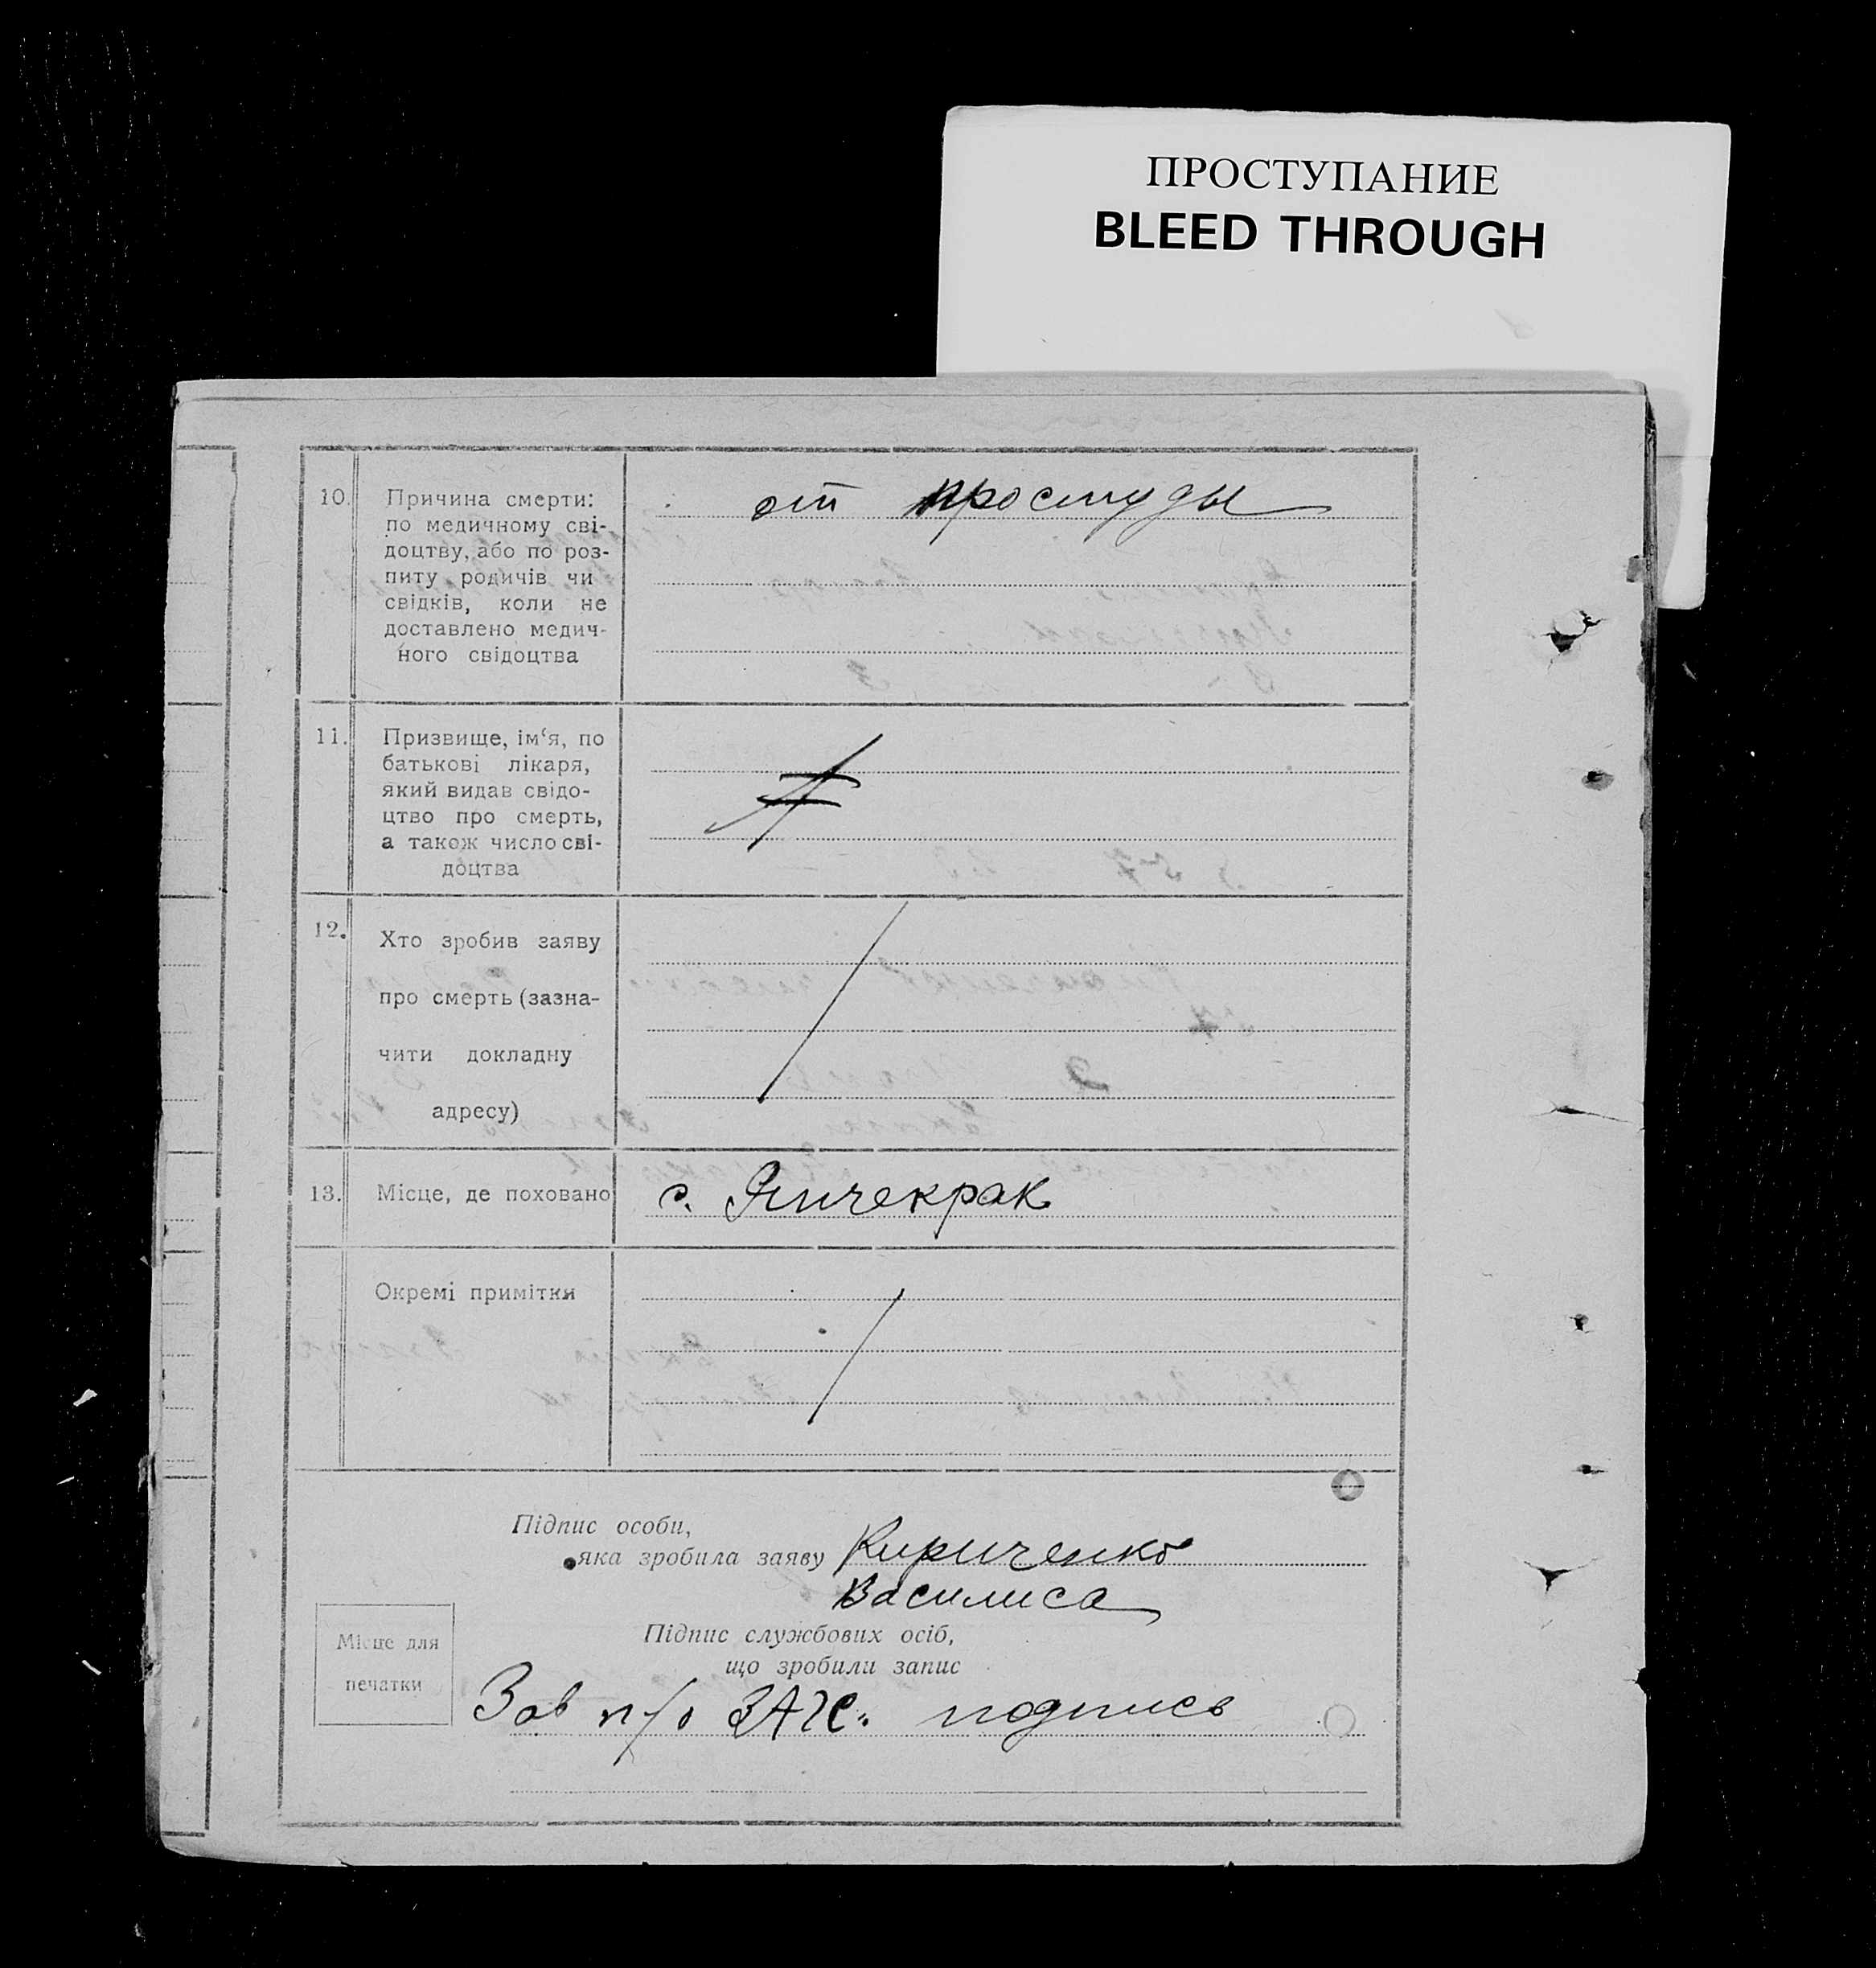 ПРОСТУПАНИЕ
BLEED THROUGH
10. Причина смерти:
по медичному сві-
доцтву, або по роз-
питу родичів чи
свідків, коли не
доставлено медич-
ного свідоцтва
от простуды
11. Призвище, ім‘я, по
батькові лікаря,
який видав свідо-
цтво про смерть,
а також число сві-
доцтва
12. Хто зробив заяву
про смерть (зазна-
чити докладну
адресу)
13. Місце, де поховано с. Янчекрак
Окремі примітки
Підпис особи,
яка зробила заяву Кириченко
Василиса
Підпис службових осіб,
що зробили запис
Місце для
печатки
Зав п/о ЗАГС. подпись